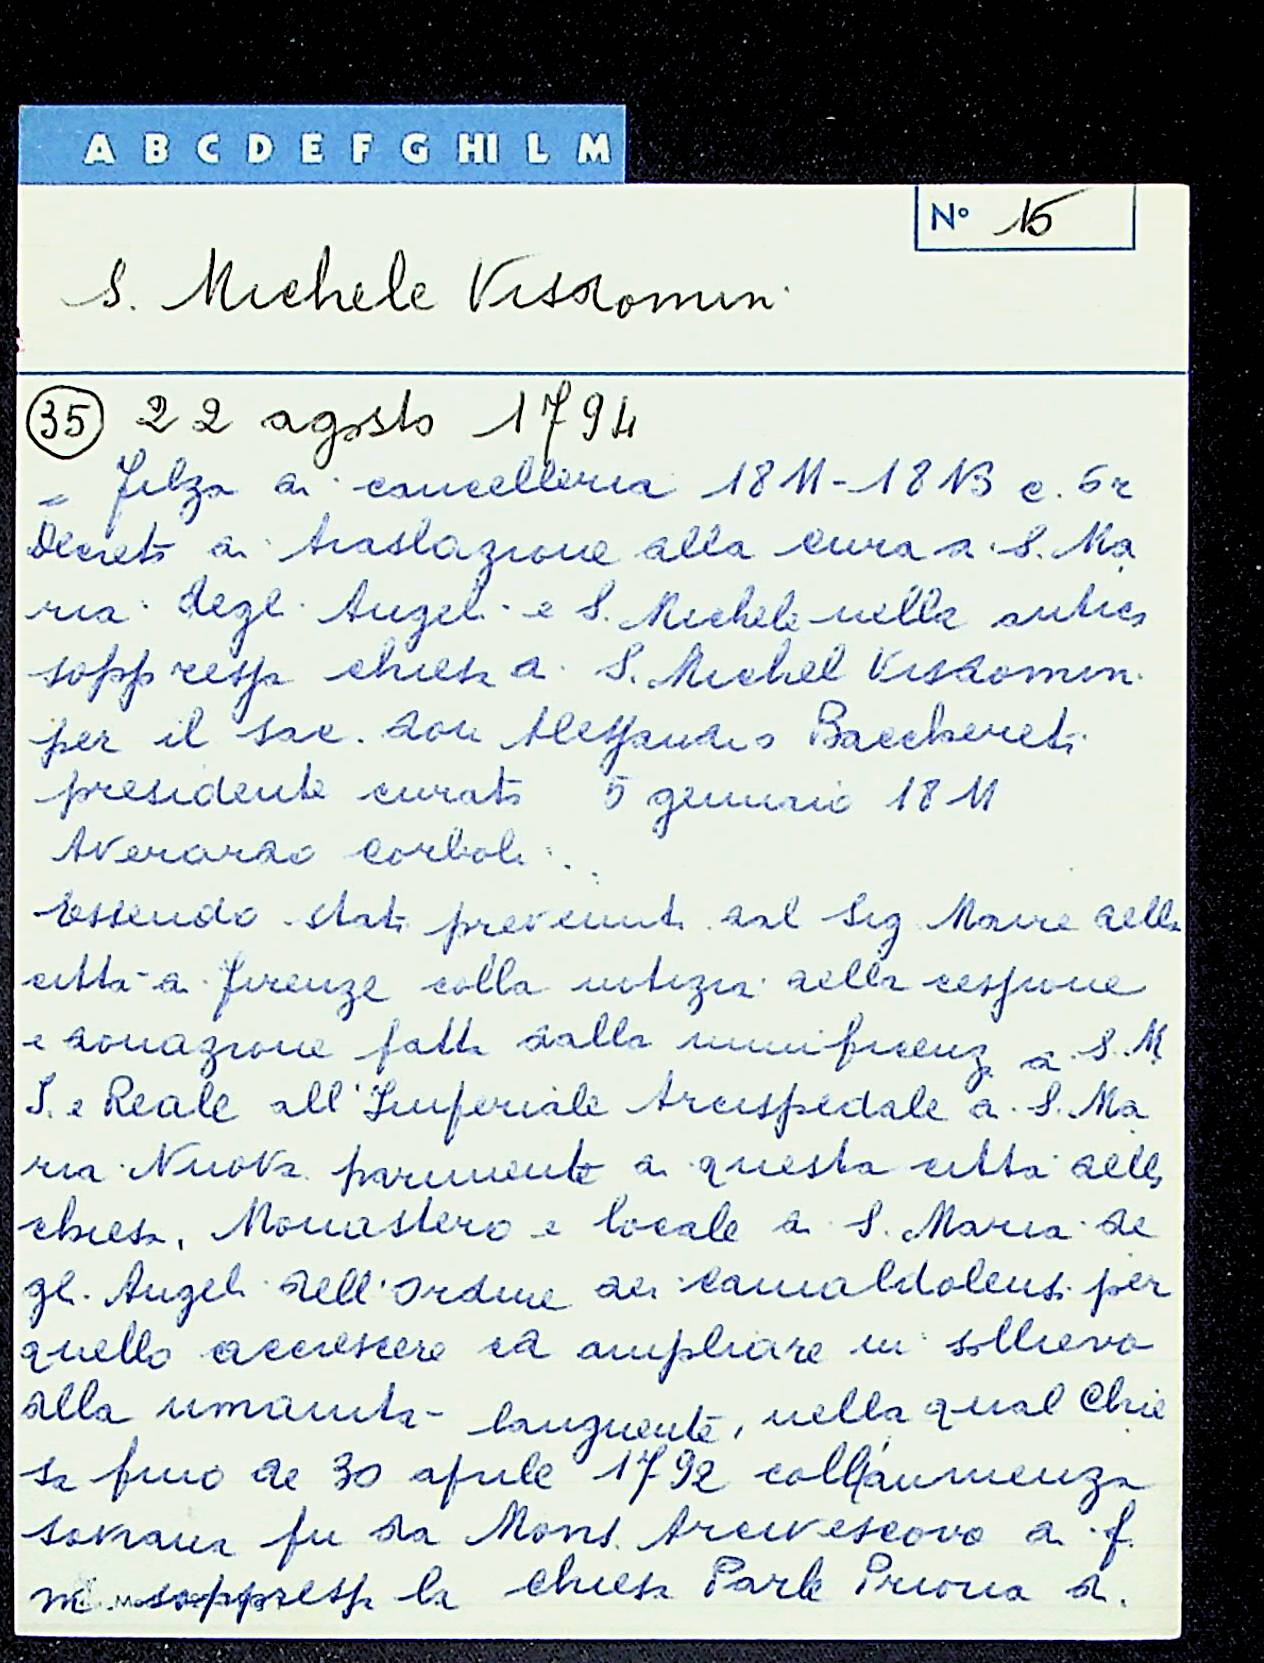 A B C D E F G HI L M
N° 15
S. Michele Visdomini
35 22 agosto 1794
= Filza di cancelleria 1811-1813 c. 5r
Decreto di traslazione alla cura di S. Ma
ria degli Angeli e S. Michele nella antica
soppressa chiesa di S. Michel Visdomini
per il sac. don Alessandro Bacchereti
presidente curato 5 gennaio 1811
Averardo Corboli
Essendo stati prevenuti dal Sig Maire della
città di Firenze colla notizia della cessione
e donazione fatta dalla munificenza di S. M.
I. e Reale all'Imperiale Arcispedale di S. Ma
ria Nuova parimente di questa città della
chiesa, Monastero e locale di S. Maria de
gli Angeli dell'Ordine dei Camaldolensi per
quello accrescere ed ampliare in sollievo
alla umanità languente, nella qual Chie
sa fino de 30 aprile 1792 coll'annuenza
sovrana fu da Mons. Arcivescovo di f.
me soppressa la chiesa Parle Prioria di